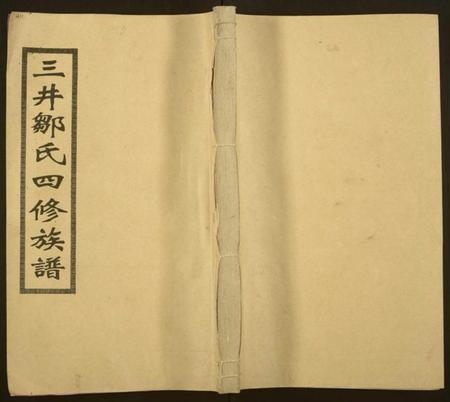 三井鄒氏四修族譜